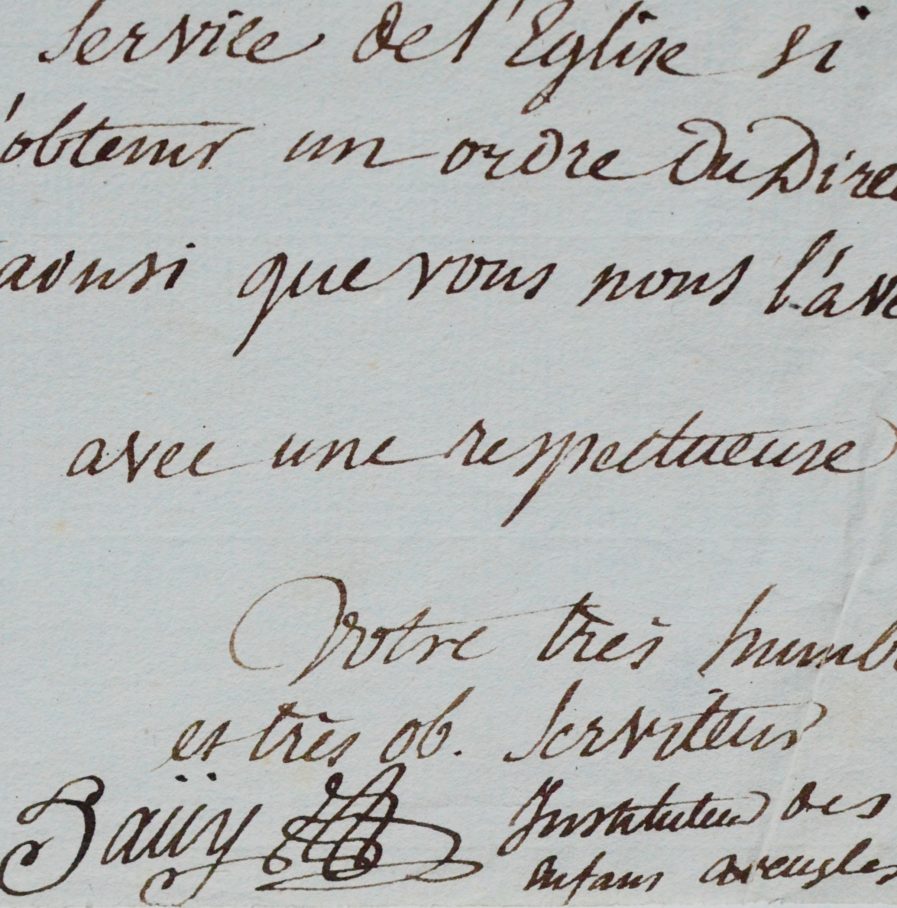 Service de l'Eglise si
'obtenir un ordre du Direc
ainsi que vous nous l'ave
avec une respectueuse
Votre très humbl
et très ob. Serviteur
haüy Instituteur des
enfans aveugles